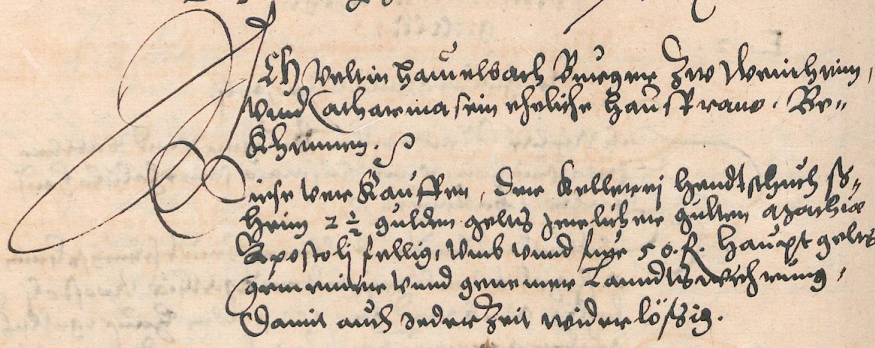 Ich Veltin Hauelbach Burger zw Weinheim,
vnnd Catharina sein eheliche Haußfraw. Be-
khennen.
Hiese verkauffen, der Kellerej Hendtschuchß-
heim 2 1/2 gulden gelts jerlicher gülten
Apostolj fellig, vmb vnnd fur 50 fl. hauptgelts
gemeiner vnnd genemer Lanndtswehrung,
Damit auch jeder Zeit widerlößig.